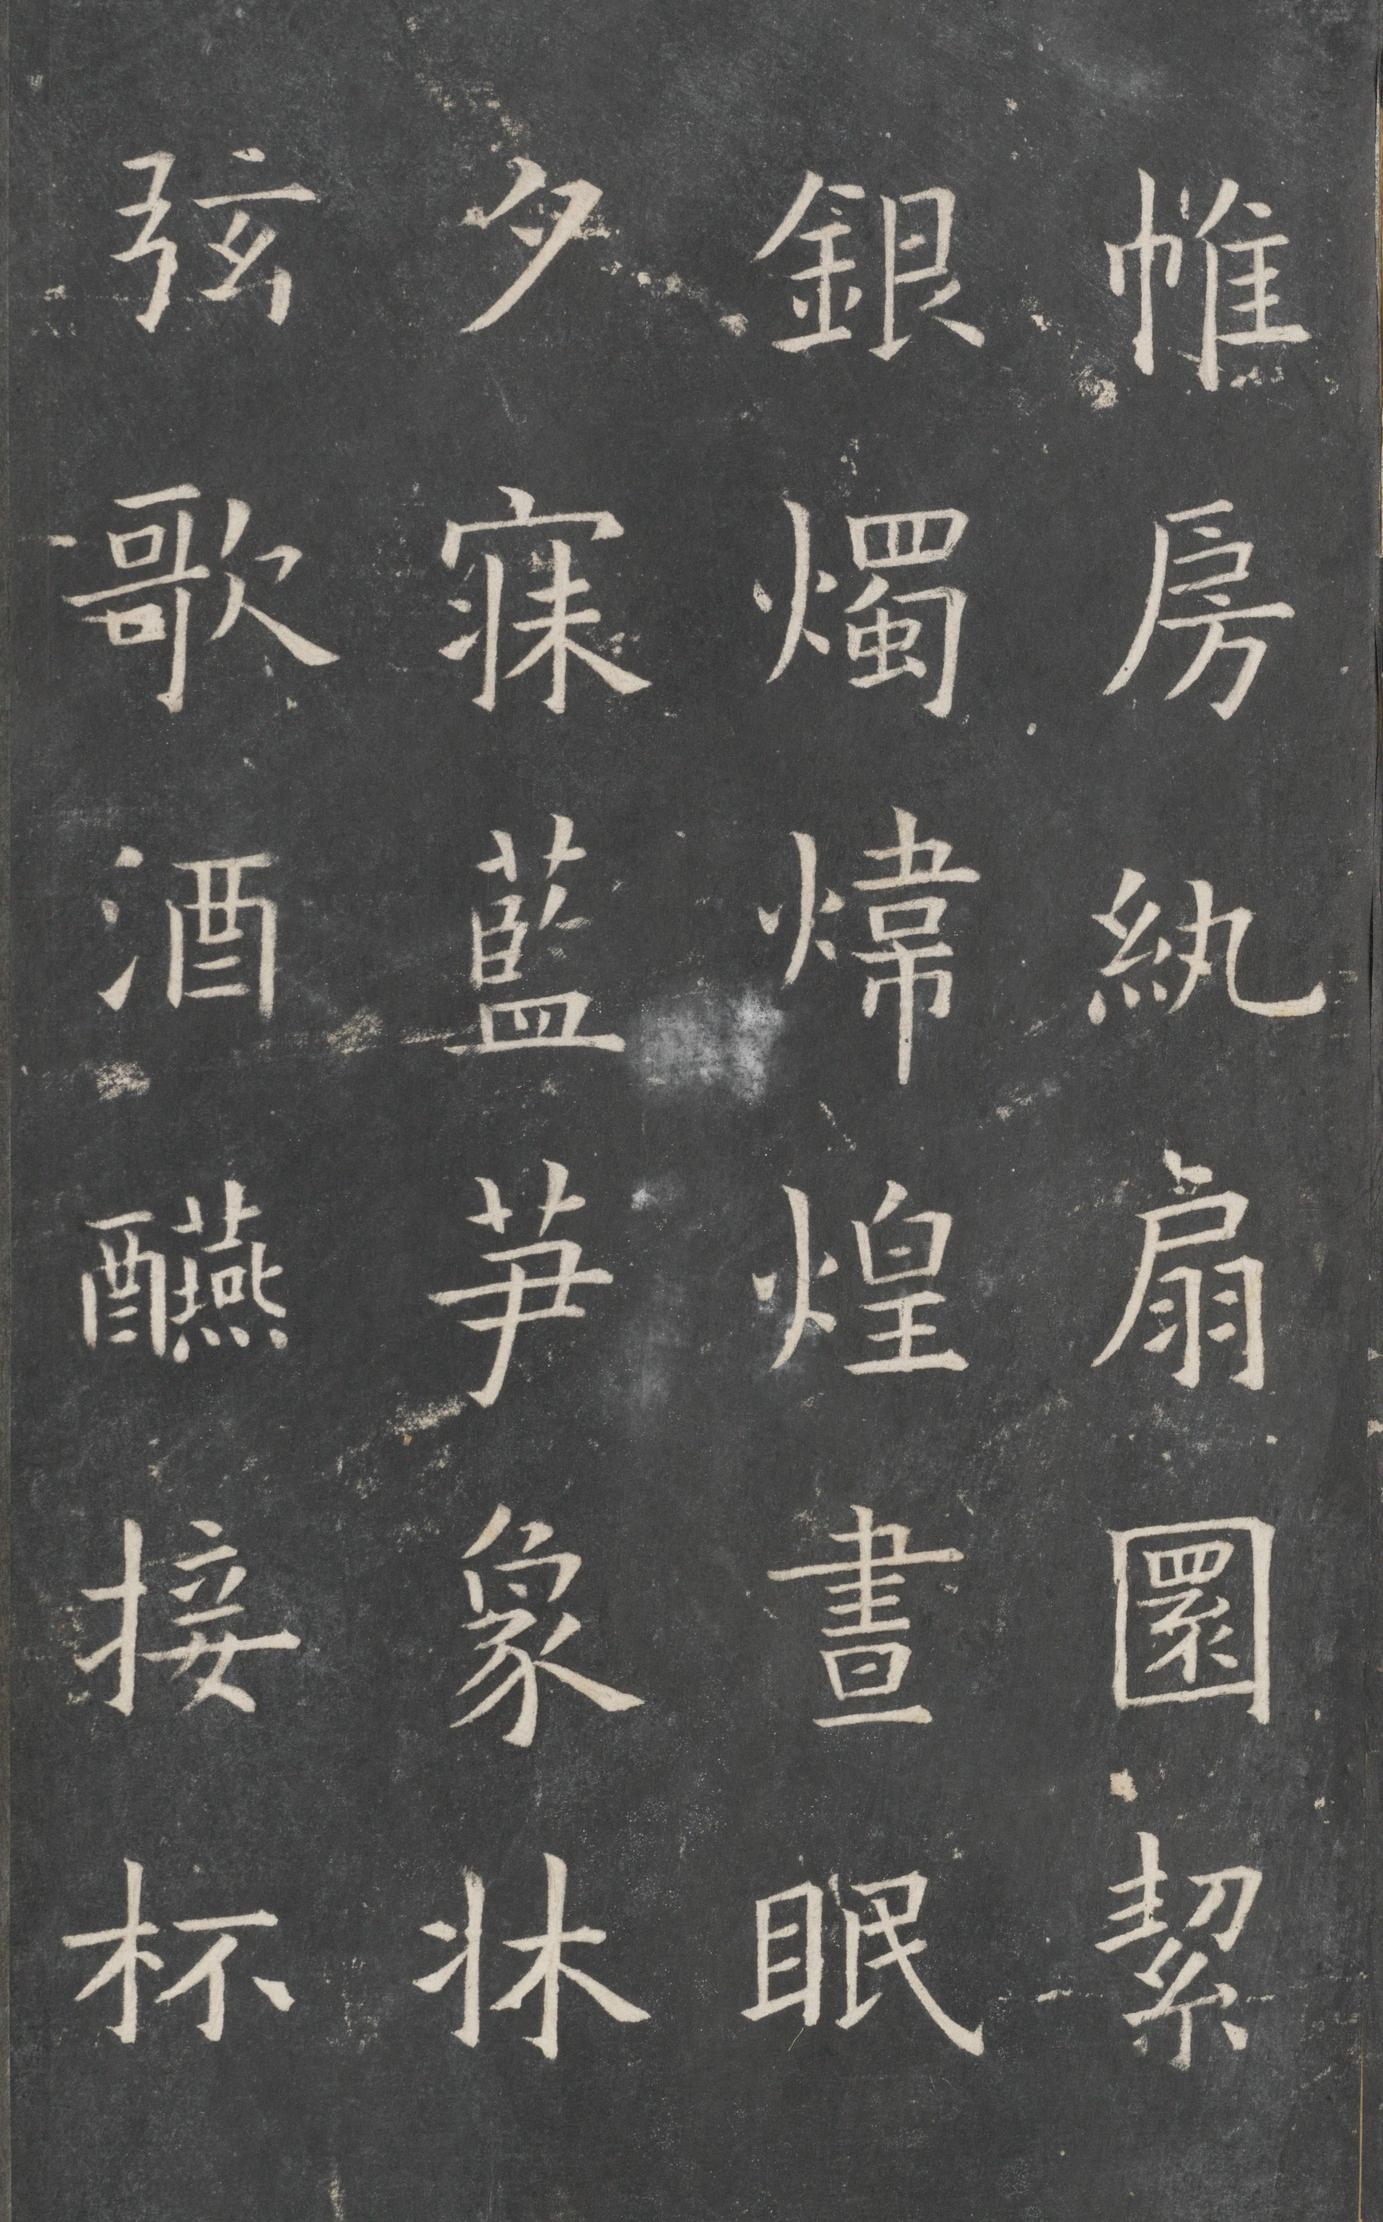 帷房紈扇圜絜
銀燭煒煌晝眠
夕寐藍笋象牀
弦歌酒醼接杯